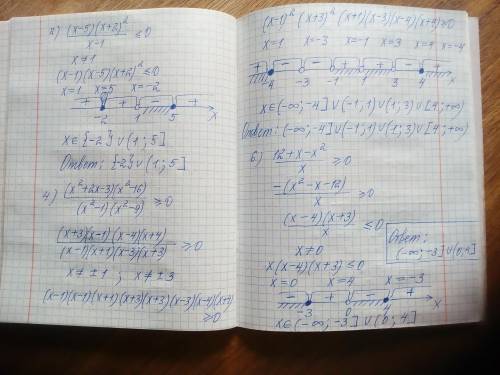 2) (x-5)(x+2)² / x-1 ≤ 0
x ≠ 1
(x-1)(x-5)(x+2)² ≤ 0
x=1 x=5 x=-2
+ + - +
-2 1 5 x
x∈{-2}∪(1;5]
Ответ: {-2}∪(1;5]
4) (x²+2x-3)(x²-16) / (x²-1)(x²-9) ≥ 0
(x+3)(x-1)(x-4)(x+4) / (x-1)(x+1)(x-3)(x+3) ≥ 0
x ≠ ±1 ; x ≠ ±3
(x-1)(x-1)(x+1)(x+3)(x+3)(x-3)(x-4)(x+4)
≥0
(x-1)²(x+3)²(x+1)(x-3)(x-4)(x+4)≥0
x=1 x=-3 x=-1 x=3 x=4 x=-4
+ - - + + - +
-4 -3 -1 1 3 4 x
x∈(-∞;-4]∪(-1;1)∪(1;3)∪[4;+∞)
Ответ: (-∞;-4]∪(-1;1)∪(1;3)∪[4;+∞)
6) 12+x-x² / x ≥ 0
-(x²-x-12) / x ≥ 0
(x-4)(x+3) / x ≤ 0
x≠0
Ответ:
(-∞;-3]∪(0;4]
x(x-4)(x+3) ≤ 0
x=0 x=4 x=-3
- + - +
-3 0 4 x
x∈(-∞;-3]∪(0;4]